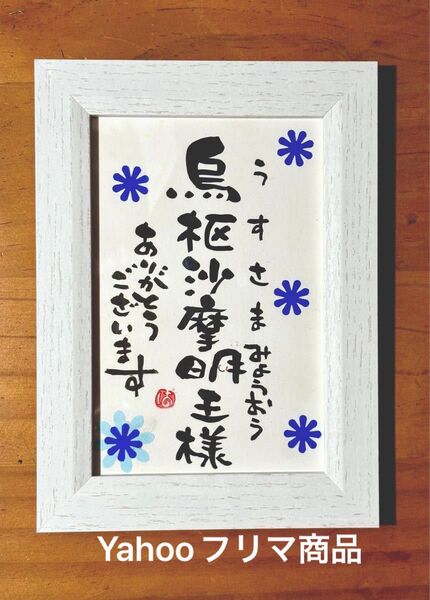 うすさまみょうおう
烏枢沙摩明王様
ありがとう
ございます
Yahooフリマ商品